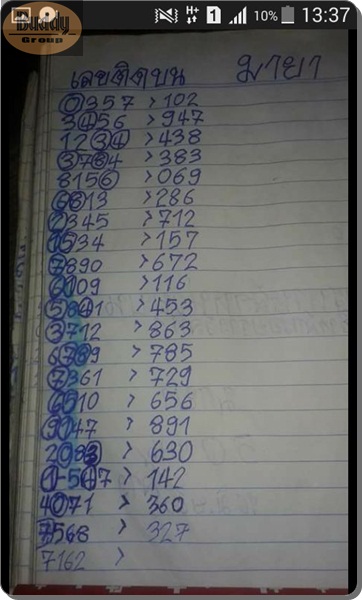 Buddy
Group
1 10% 13:37
เลขติดบน มายา
0357 >102
3456 >947
1234 >438
3734 >383
8156 >069
6813 >286
2345 >712
1534 >157
7890 >672
6109 >116
5841 >453
3712 >863
6789 >785
7361 >729
6510 >656
9147 >891
2083 >630
1-547 >142
4071 > 360
7568 > 327
7162 >